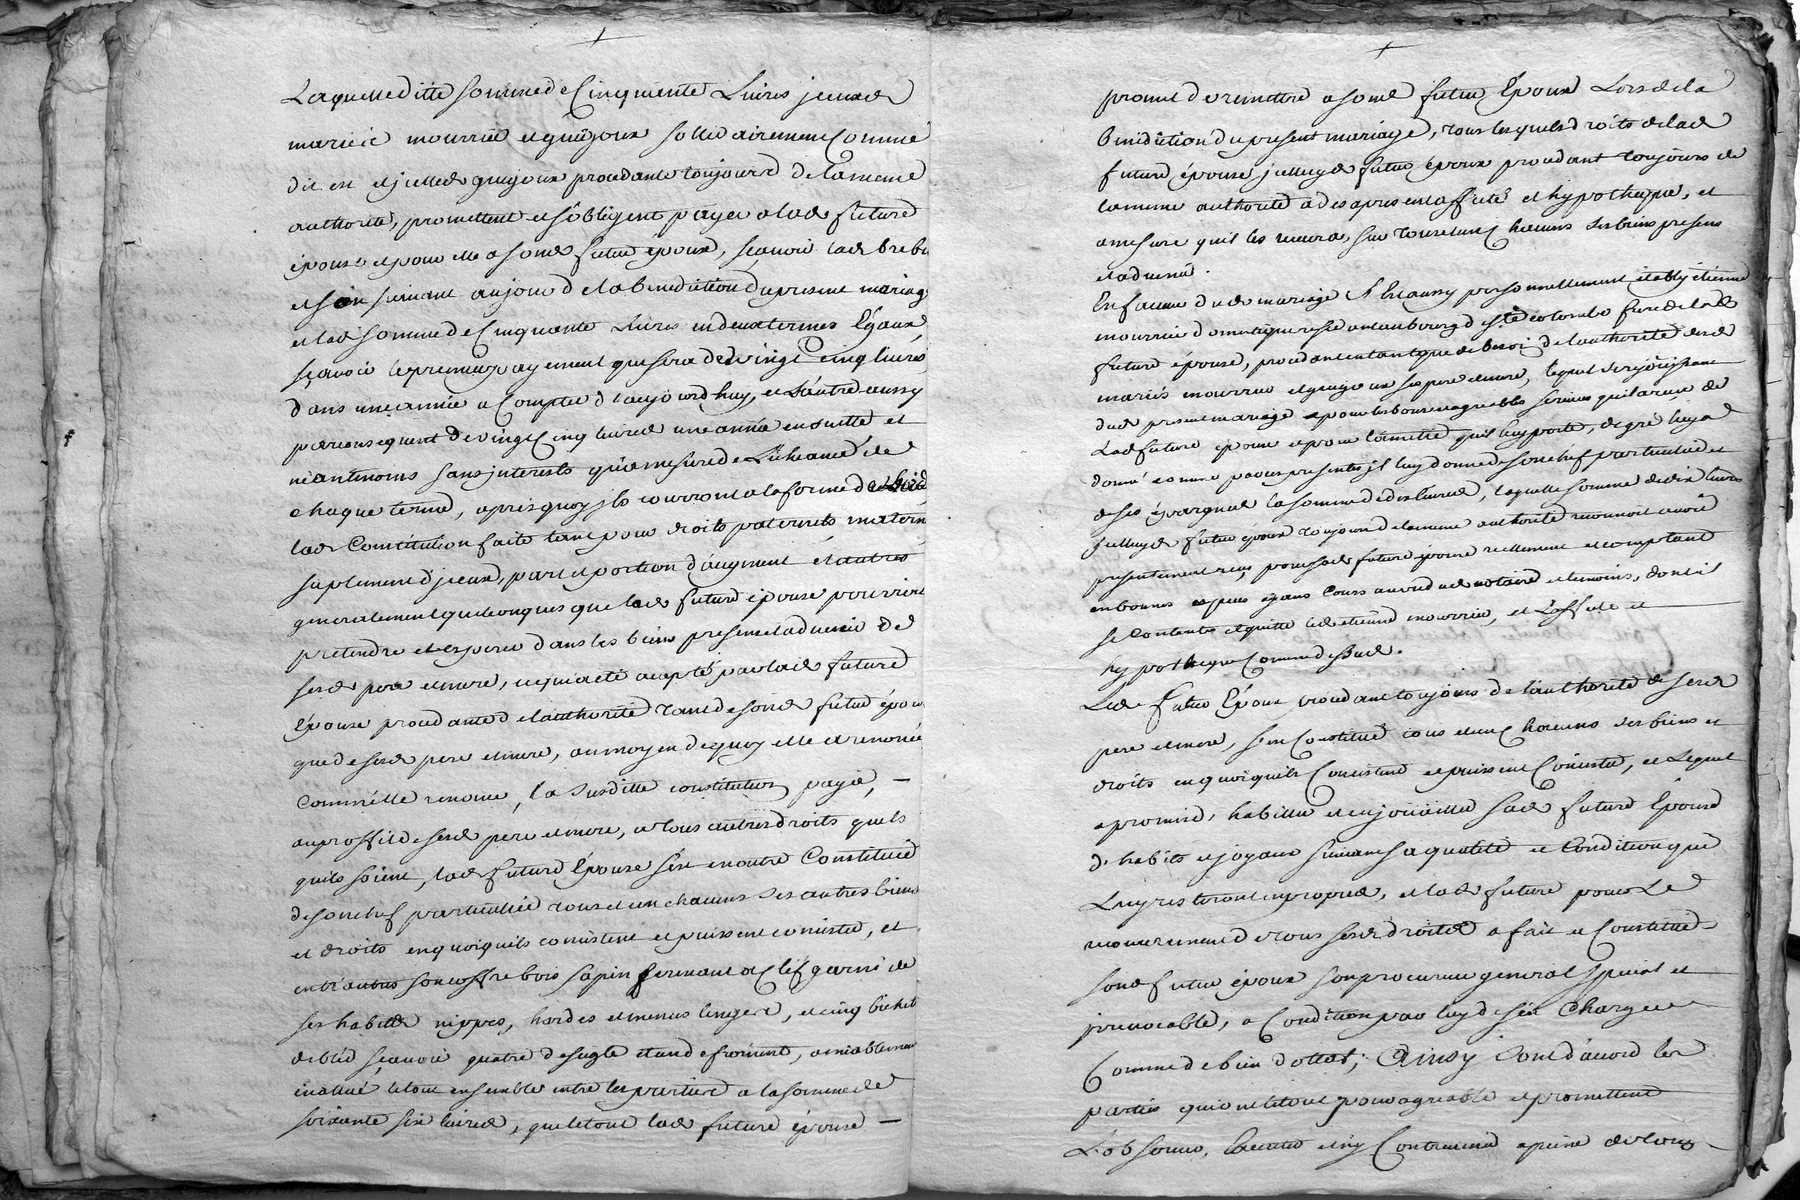 Laquelle ditte somme de Cinquante Livres
mariés mourrier et sollidairement Comme
dit est et procedante toujours de la meme
authorité, promettent et s'obligent payer a lad future
épouse et pour elle a sond futur époux, sçavoir lad brebis
et suivant au jour de la benediction du present mariage
et lad somme de Cinquante Livres en deux termes Egaux
sçavoir le premier payement que sera de vingt cinq livres
dans une année a Compter d'aujourd'huy, et l'autre aussy
par consequent de vingt Cinq livres une année ensuitte et
néantmoins sans interests qu'a mesure de L'écheance de
chaque terme, apres quoy ils courront a la forme
lad Constitution faite tant pour droits paternels, maternels
suplement d'jceux, part et portion d'augment et autres
generalement quelconques que lad future épouse pourroit
pretendre et esperer dans les biens present et advenir de
sesd pere et mere, ce qui a été accepté par lad future
Epouse procedante de l'authorité tant de sond futur époux
que de sesd pere et mere, au moyen de quoy elle a renoncé
Comm'elle renonce, la susditte constitution payée, —
au proffit de sesd pere et mere, a tous autres droits quels
qu'ils soient, lad future Epouse s'est en outre Constituée
de son chef particulier tous et un chacuns ses autres biens
et droits en quoi quils consistent et puissent consister, et
entr'autres son coffre bois sapin fermant a Clef garni de
ses habits nippes, hardes et menus linges, et cinq bichets
de bled sçavoir quatre de seigle et un de froment, amiablement
évalué le tout ensemble entre les parties a la somme de
soixante six livres, que le tout lad future épouse —
promet de remettre a sond futur Epoux Lors de la
Benediction du present mariage, tous lesquels droits de lad
future épouse jcelluy futur époux procedant toujours de
la meme authorité a des a present affecté et hypothequé, et
a mesure qu'il les recevra, sur tous et uns chacuns ses biens presens
et advenir.
En faveur dud mariage s'est aussy personnellement établi étienne
mourrier domestique resté au faubourg de Ste colombe frere de lad
future épouse, procedant en tant que de besoin de l'authorité desd
mariés mourrier et ses pere et mere, lequel se rejouissant
dud present mariage et pour les bons et agreables services qu'il a reçu de
Lad future épouse et pour l'amitié qu'il luy porte, de gré luy a
donné comme par ces presentes il luy donne de son chef particulier et
de ses épargnes la somme de dix livres, laquelle somme de dix livres
jcelluy futur époux toujours de la meme authorité reconnoit avoir
presentement reçu pour sad future épouse reellement et comptant
en bonnes especes ayans Cours au vu dud notaire et temoins, dont il
se Contente et quitte led etienne mourrier, et L'affecte et
hypotheque Comme dessus.
Led futur Epoux procedant toujours de l'authorité de sesd
pere et mere, s'est Constitué tous et uns chacuns ses biens et
droits en quoi quils Consistent et puissent Consister, et Lequel
a promis, habiller et enjoüailler sad future Epouse
d'habits et joyaux suivant sa qualité et Condition que
Luy resteront en propre, et lad future pour Le
recouvrement de tous sesd droits a fait et Constitué
sond futur époux son procureur general special et
jrrevocable, a Condition par luy de s'en Charger
Comme de bien dottal; Ainsy sont d'accord les
parties qui ont le tout pour agreable et promettent
L'observer, et n'y Contrevenir a peine de tous